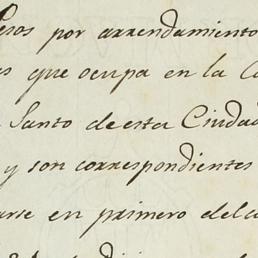 Pesos por arrendamiento
que ocupa en la
Santo de esta Ciudad
y son correspondientes
en primero del